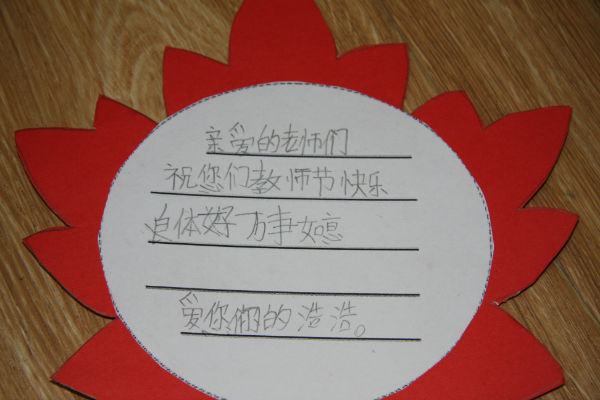 亲爱的老师们
祝您们教师节快乐
身体好万事如意
爱你们的浩浩。